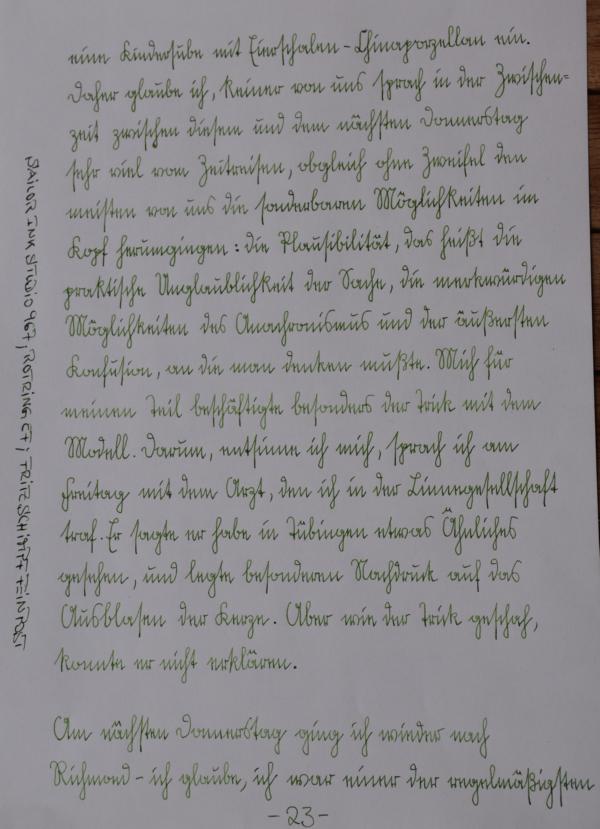 eine Kindersube mit Eierschalen-Chinaporzellan ein.
Daher glaube ich, keiner von uns sprach in der Zwischen=
zeit zwischen diesem und dem nächsten Donnerstag
sehr viel vom Zeitreisen, obgleich ohne Zweifel den
meisten von uns die sonderbaren Möglichkeiten im
Kopf herumgingen: die Plausibilität, das heißt die
praktische Unglaublichkeit der Sache, die merkwürdigen
Möglichkeiten des Anachronismus und der äußersten
Konfusion, an die man denken mußte. Mich für
meinen Teil beschäftigte besonders der Trick mit dem
Modell. Darum, entsinne ich mich, sprach ich am
Freitag mit dem Arzt, den ich in der Linnegesellschaft
traf. Er sagte er habe in Tübingen etwas Ähnliches
gesehen, und legte besonderen Nachdruck auf das
Ausblasen der Kerze. Aber wie der Trick geschah,
konnte er nicht erklären.
Am nächsten Donnerstag ging ich wieder nach
Richmond - ich glaube, ich war einer der regelmäßigsten
-23-
SAILOR INK STUDIO 967; ROTRING EF; FRITZ SCHIMPF FEINPOST